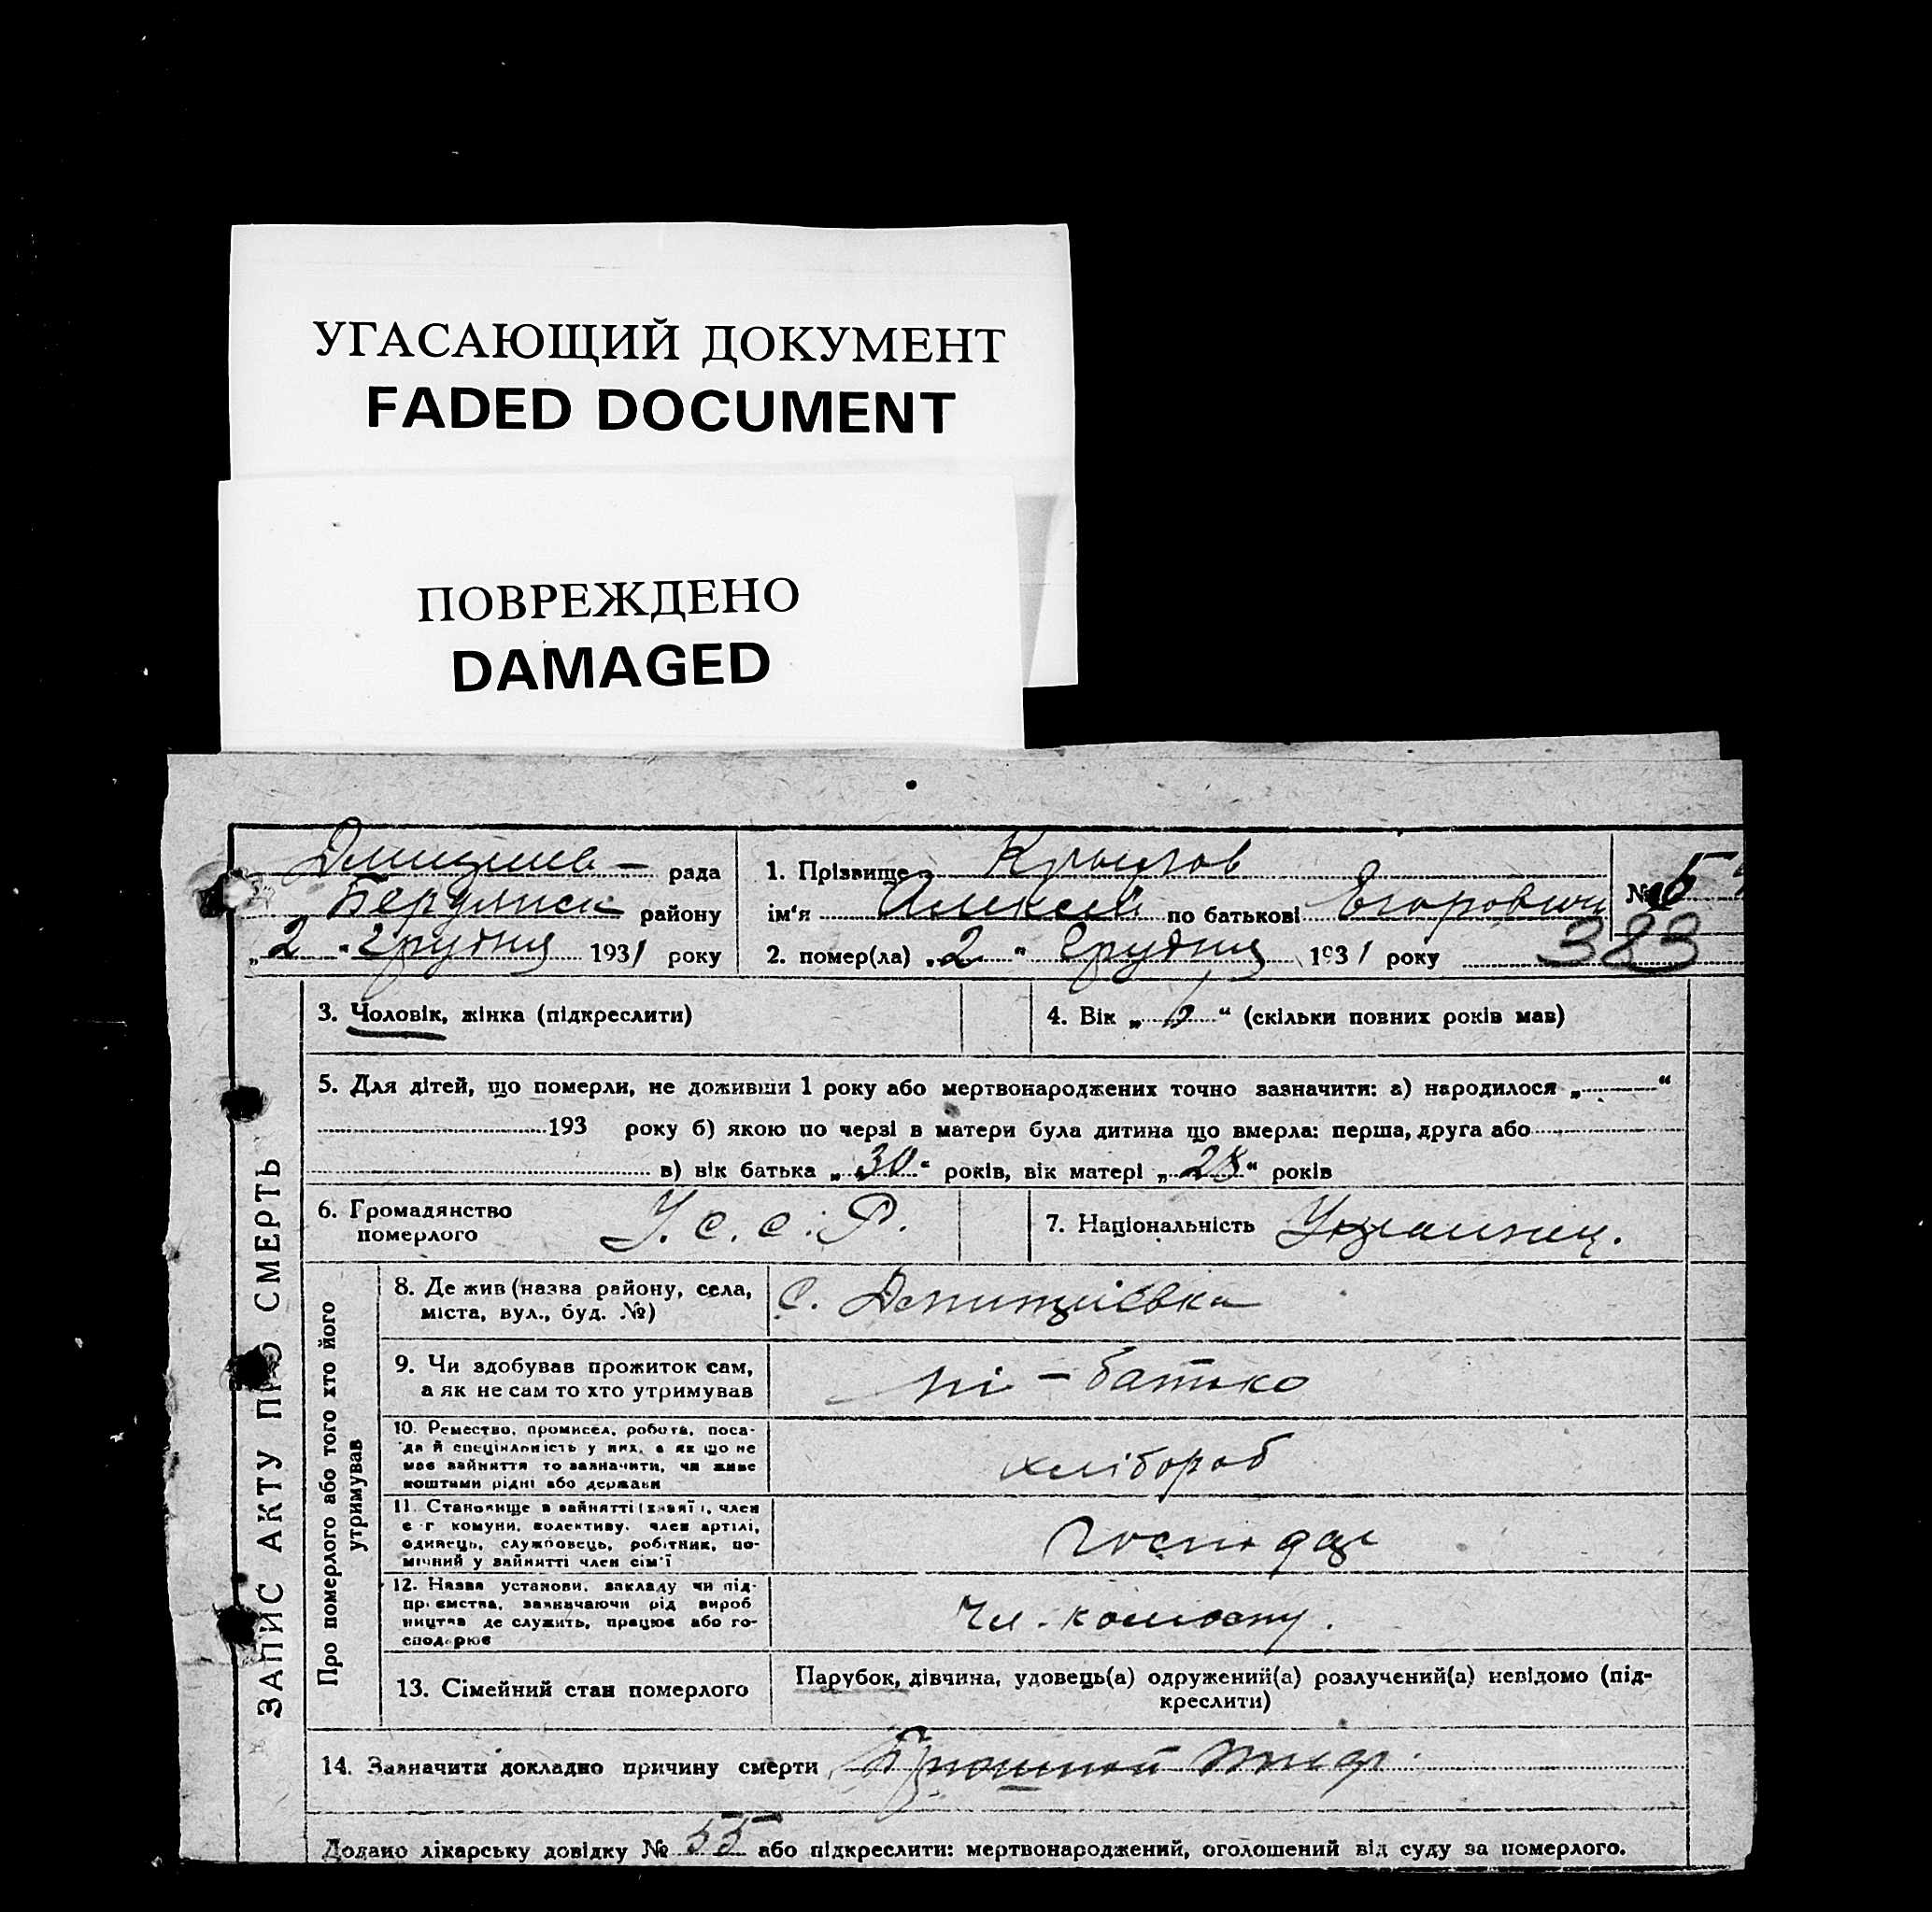 УГАСАЮЩИЙ ДОКУМЕНТ
FADED DOCUMENT
ПОВРЕЖДЕНО
DAMAGED
рада
Бердянск району
„2“ грудня 1931 року
1. Прізвище
ім'я Алексей по батькові Егорович
2. помер(ла) „2“ грудня 1931 року
№
383
ЗАПИС АКТУ ПРО СМЕРТЬ
3. Чоловік, жінка (підкреслити)
4. Вік „ “ (скільки повних років мав)
5. Для дітей, що померли, не доживши 1 року або мертвонароджених точно зазначити: а) народилося „ “
193 року б) якою по черзі в матери була дитина що вмерла: перша, друга або
в) вік батька „30“ років, вік матері „28“ років
6. Громадянство
померлого
У.С.С.Р.
7. Національність Украинец.
Про померлого або того хто його
утримував
8. Де жив (назва району, села,
міста, вул., буд. №)
с.
9. Чи здобував прожиток сам,
а як не сам то хто утримував
ні - батько
10. Ремество, промисел, робота, поса-
да й спеціяльність у них, а як що не
має зайняття то зазначити, чи живе
коштами рідні або держави
хлібороб
11. Становище в зайнятті (хазяї), член
с-г комуни, колективу, член артілі,
одинець, служповець, робітник, по-
мічний у зайнятті член сім'ї
12. Назва установи, закладу чи під-
приємства, зазначаючи рід вироб
ництва де служить, працює або го-
сподарює
чл.
13. Сімейний стан померлого
Парубок, дівчина, удовець(а) одружений(а) розлучений(а) невідомо (під-
креслити)
14. Зазначити докладно причину смерти Брюшной тиф
Додано лікарську довідку № 55 або підкреслити: мертвонароджений, оголошений від суду за померлого.